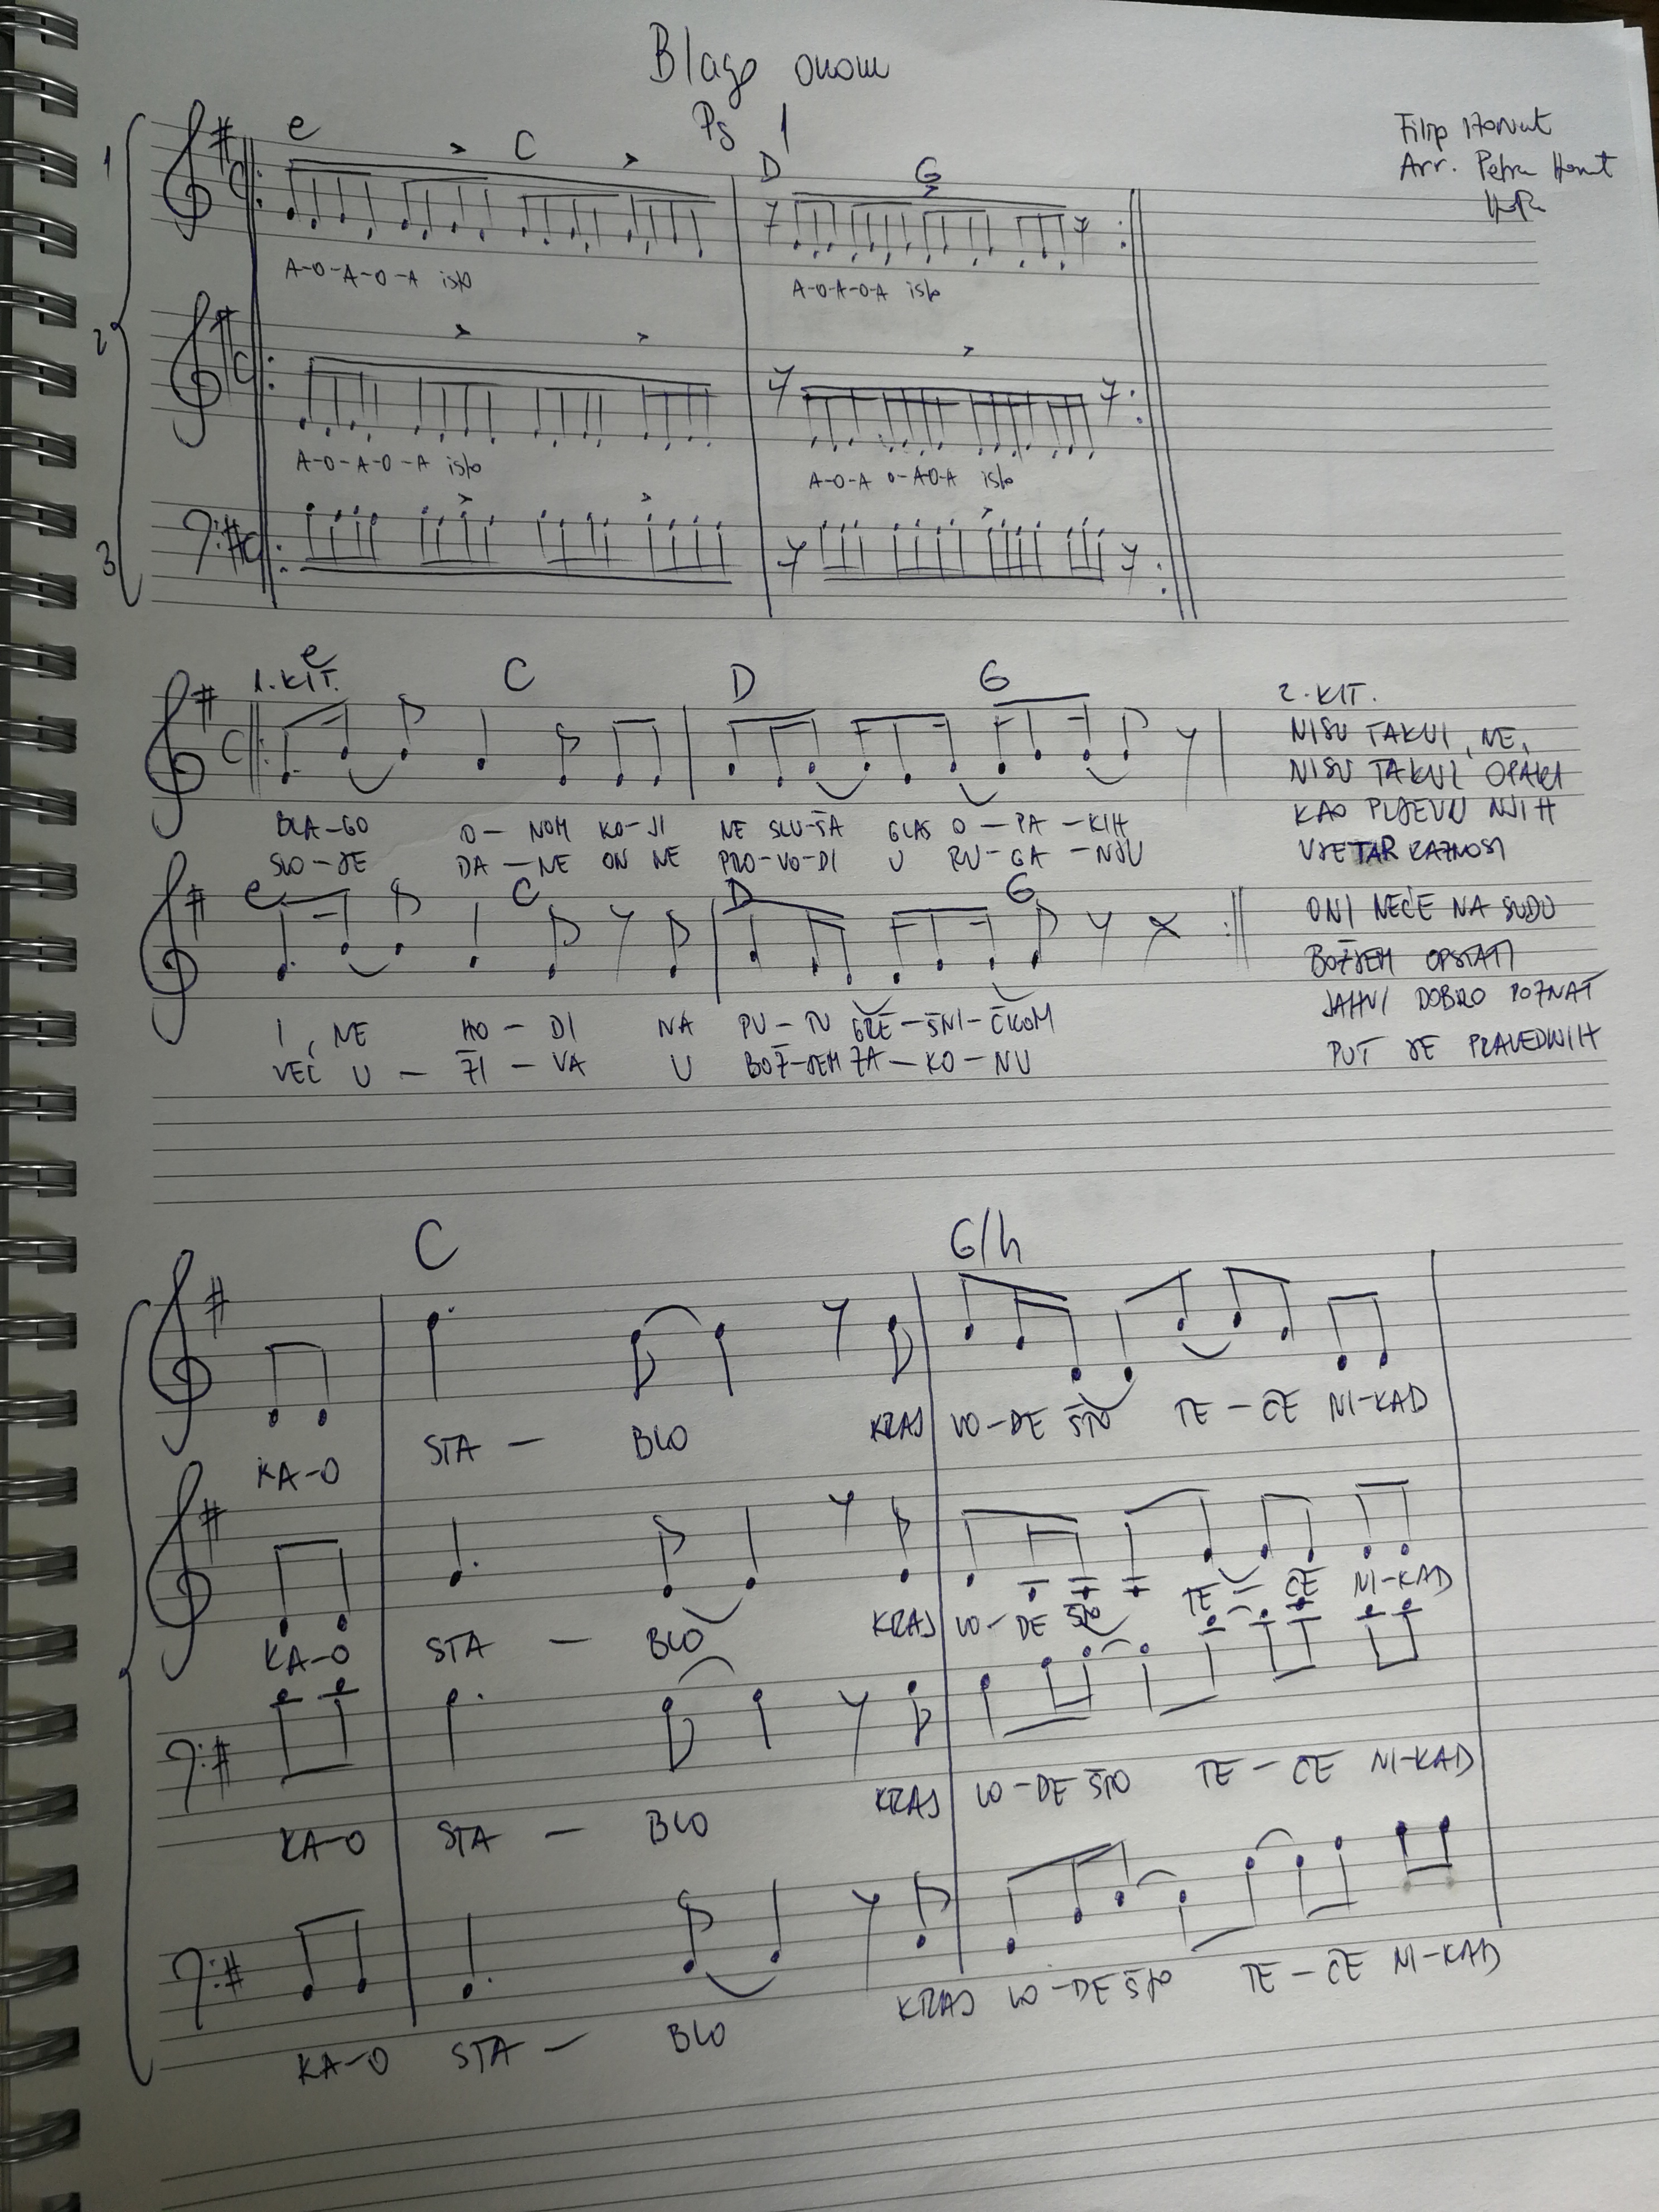 Blago onom
Ps 1
Filip
Arr. Petra
1 e C D G
A-O-A-O-A isto A-O-A-O-A isto
2
A-O-A-O-A isto A-O-A O-AO-A isto
3
1. KIT. e C D G
BLA-GO O-NOM KO-JI NE SLU-ŠA GLAS O-PA-KIH
SVO-JE DA-NE ON NE PRO-VO-DI U RU-GA-NJU
e C D G
I, NE HO-DI NA PU-TU GRE-ŠNI-ČKOM
VEĆ U-ŽI-VA U BOŽ-JEM ZA-KO-NU
2. KIT.
NISU TAKVI, NE,
NISU TAKVI OPAKI
KAO PLJEVU NJIH
VJETAR RAZNOSI
ONI NEĆE NA SUDU
BOŽJEM OPSTATI
JAHVI DOBRO POZNAT
PUT JE PRAVEDNIH
C G/h
KA-O STA-BLO KRAJ VO-DE ŠTO TE-ČE NI-KAD
KA-O STA-BLO KRAJ VO-DE ŠTO TE-ČE NI-KAD
KA-O STA-BLO KRAJ VO-DE ŠTO TE-ČE NI-KAD
KA-O STA-BLO KRAJ VO-DE ŠTO TE-ČE NI-KAD